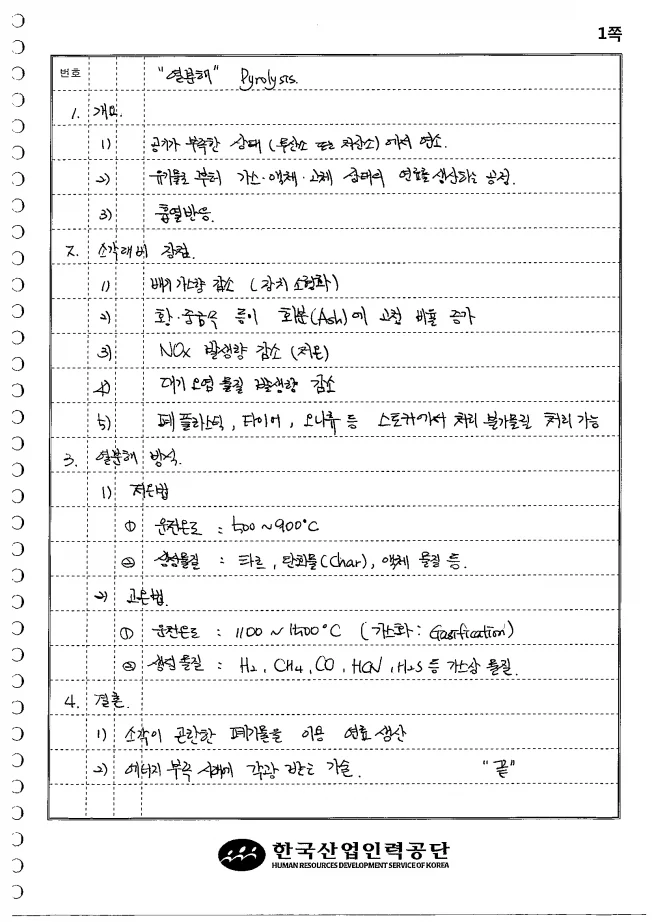 1쪽
번호 "열분해" Pyrolysis.
1. 개요.
1) 공기가 부족한 상태 (무산소 또는 저산소)에서 연소.
2) 유기물로 부터 가스·액체·고체 상태의 연료를 생산하는 공정.
3) 흡열반응.
2. 소각대비 장점.
1) 배기가스량 감소 (장치 소형화)
2) 황·중금속 등이 회분(Ash)에 고정 비율 증가
3) NOx 발생량 감소 (저온)
4) 대기오염 물질 발생량 감소
5) 폐플라스틱, 타이어, 오니류 등 스토커에서 처리 불가물질 처리 가능
3. 열분해 방식.
1) 저온법
① 운전온도 : 500 ~ 900°C
② 생성물질 : 타르, 탄화물(Char), 액체 물질 등.
2) 고온법.
① 운전온도 : 1100 ~ 1500°C (가스화 : Gasification)
② 생성물질 : H₂, CH₄, CO, HCN, H₂S 등 가스상 물질.
4. 결론.
1) 소각이 곤란한 폐기물을 이용 연료 생산
2) 에너지 부족 시대에 각광 받는 기술. "끝"
한국산업인력공단
HUMAN RESOURCES DEVELOPMENT SERVICE OF KOREA